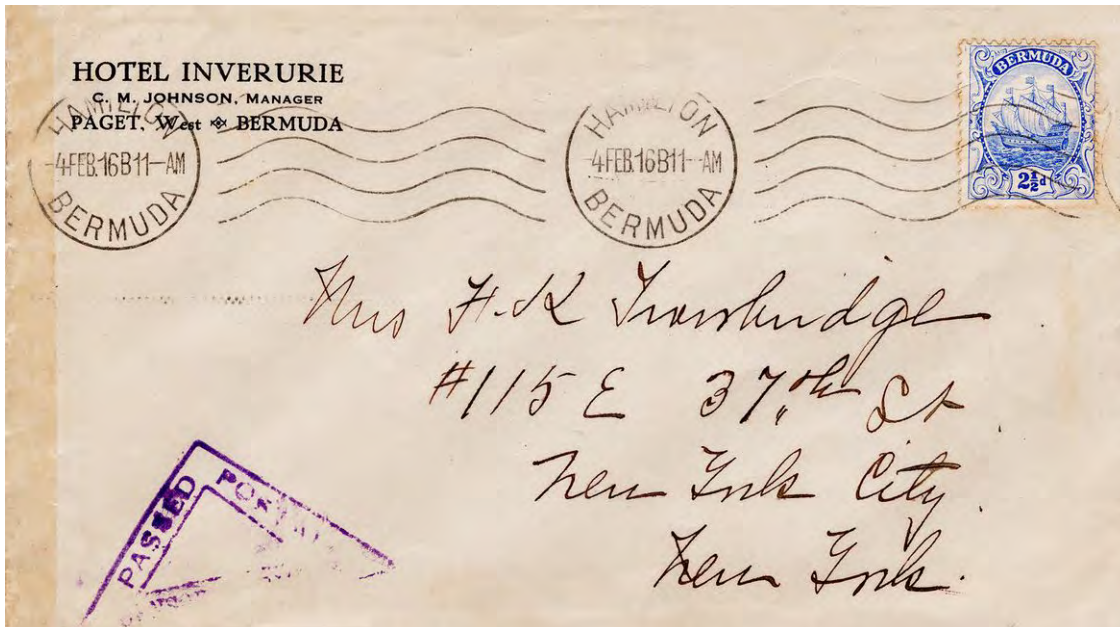 HOTEL INVERURIE
C. M. JOHNSON, MANAGER
PAGET, West BERMUDA
HAMILTON
4 FEB. 16 B 11 - AM
BERMUDA
HAMILTON
4 FEB. 16 B 11 - AM
BERMUDA
BERMUDA
2½d
Mrs H. K Trowbridge
#115 E 37th St
New York City
New York.
PASSED